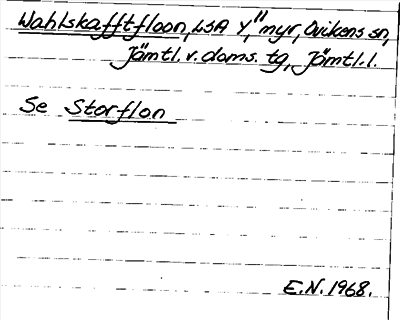 Wahlskafftfloon, LSA Y", myr, Ovikens sn,
Jämtl. v. doms. tg, Jämtl. l.
Se Storflon
E.N. 1968.